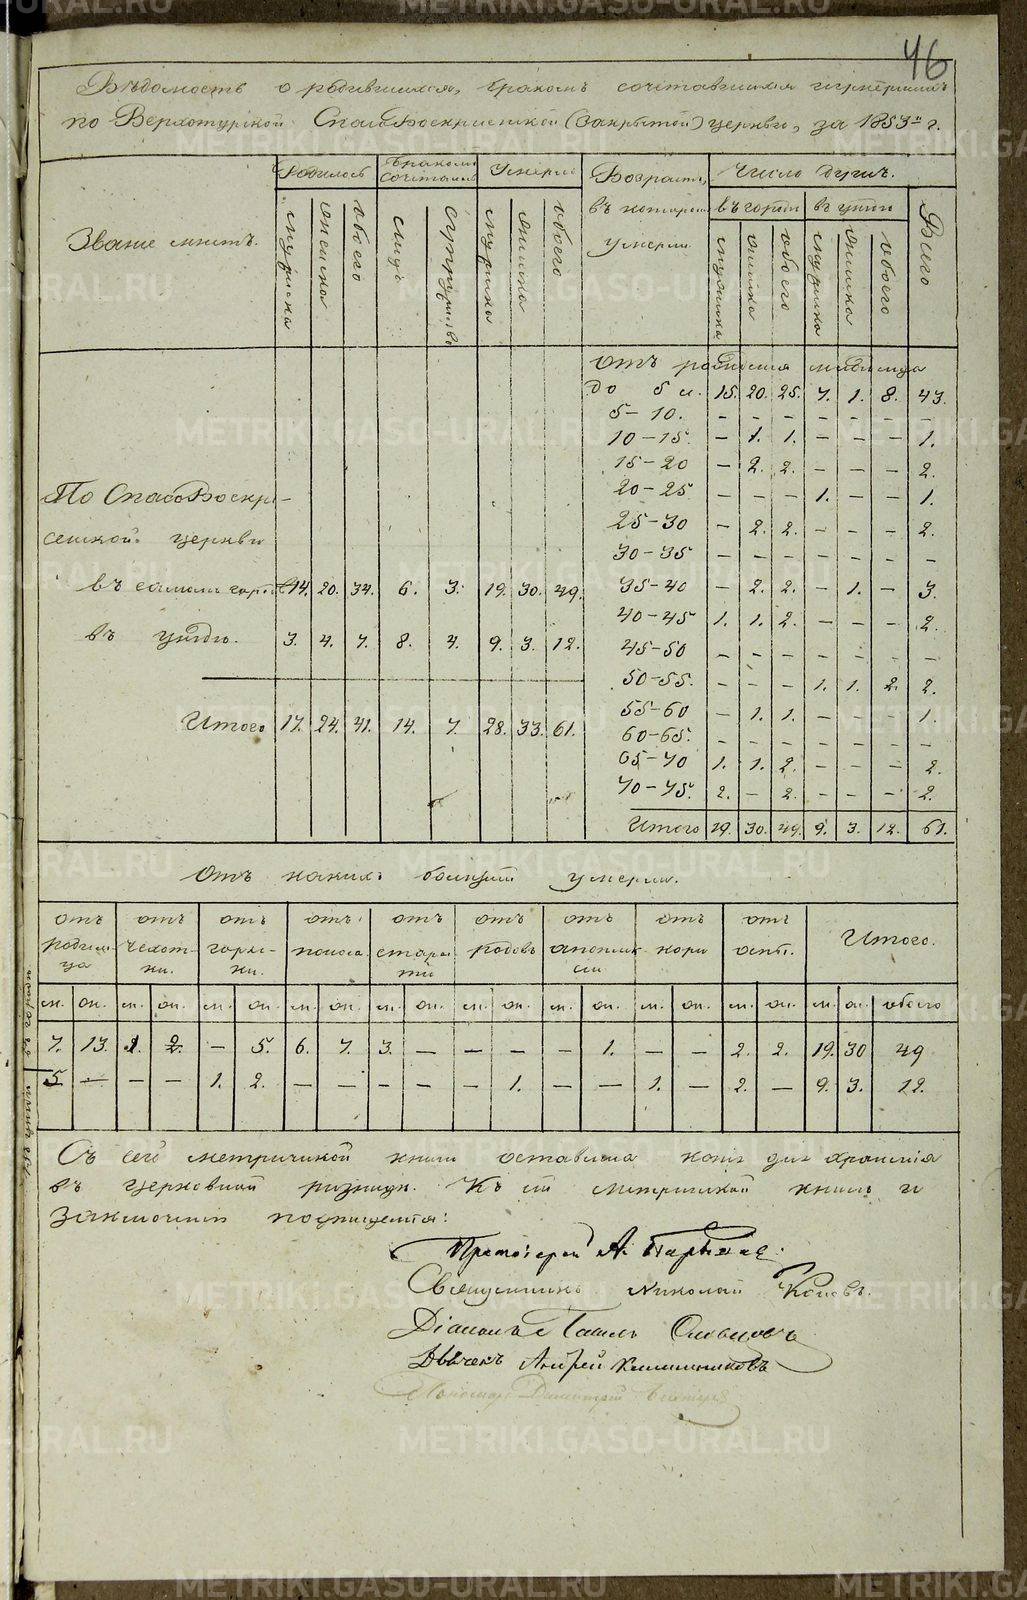 46
Вѣдомость о родившихся, бракомъ сочетавшихся и умершихъ
по Верхотурской Спасо Воскресенской (Закрытой) церкви, за 1853й г.
Званіе мѣстъ.
Родилось
мужеска
женска
обоего
Бракомъ сочеталось
лицъ
супружествъ
Умерло
мужеска
женска
обоего
Возрастъ,
въ которомъ
умерли
Число душъ.
въ городѣ
мужеска
женска
обоего
въ уѣздѣ
мужеска
женска
обоего
Всего
По Спасо Воскре-
сенской церкви
въ самомъ городѣ 14. 20. 34. 6. 3. 19. 30. 49.
въ уѣздѣ. 3. 4. 7. 8. 4. 9. 3. 12.
Итого 17. 24. 41. 14. 7. 28. 33. 61.
отъ рожденія младенца
до 5 л. 15. 20. 25. 7. 1. 8. 43.
5-10. - - - - - - -
10-15. - 1. 1. - - - 1.
15-20 - 2. 2. - - - 2.
20-25 - - - 1. - - 1.
25-30 - 2. 2. - - - 2.
30-35 - - - - - - -
35-40 - 2. 2. - 1. - 3.
40-45 1. 1. 2. - - - 2.
45-50 - - - - - - -
50-55. - - - 1. 1. 2. 2.
55-60 - 1. 1. - - - 1.
60-65. - - - - - - -
65-70 1. 1. 2. - - - 2.
70-75. 2. - 2. - - - 2.
Итого 19. 30. 49. 9. 3. 12. 61.
Отъ какихъ болѣзней умерли.
отъ родимца
отъ чехотки.
отъ горячки.
отъ поноса
отъ старости
отъ родовъ
отъ апоплексіи
отъ кори
отъ оспы.
Итого.
м. ж. м. ж. м. ж. м. ж. м. ж. м. ж. м. ж. м. ж. м. ж. м. ж. обоего
въ городѣ 7. 13. 1. 2. - 5. 6. 7. 3. - - - - 1. - - 2. 2. 19. 30 49
въ уѣздѣ 5. - - - 1. 2. - - - - - 1. - - 1. - 2. - 9. 3. 12.
Съ сей метрической книги оставлена копія для храненія
въ церковной ризницѣ. Къ сей метрической книгѣ и
заключенію подпишемся:
Протоіерей А.
Священникъ Николай Поповъ.
Діаконъ Павелъ
Дьячекъ Андрей
Пономарь Димитрій
METRIKI.GASO-URAL.RU